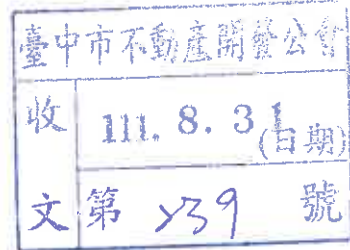 臺中市不動產開發公會
收 111. 8. 31 (日期)
文 第 239 號